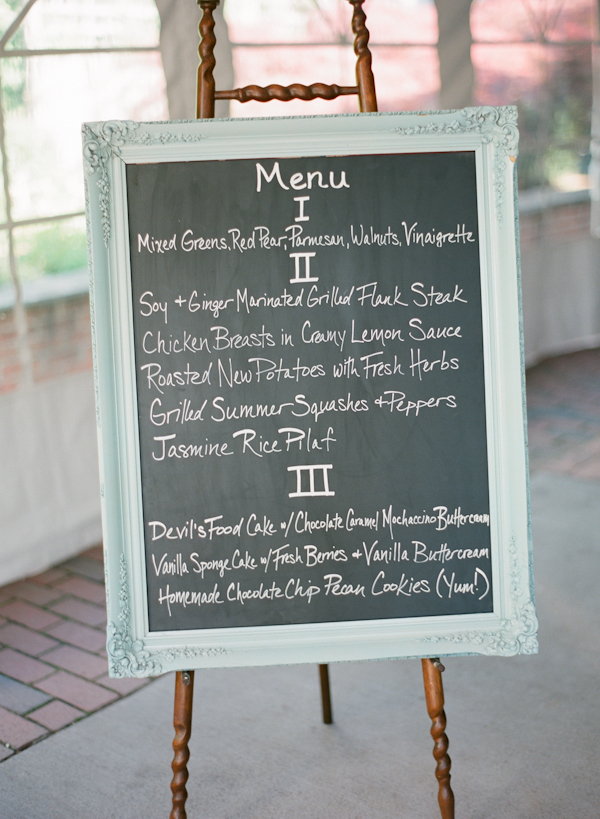 Menu
I
Mixed Greens, Red Pear, Parmesan, Walnuts, Vinaigrette
II
Soy + Ginger Marinated Grilled Flank Steak
Chicken Breasts in Creamy Lemon Sauce
Roasted New Potatoes with Fresh Herbs
Grilled Summer Squashes + Peppers
Jasmine Rice Pilaf
III
Devil's Food Cake w/ Chocolate Caramel Mochaccino Buttercream
Vanilla Sponge Cake w/ Fresh Berries + Vanilla Buttercream
Homemade Chocolate Chip Pecan Cookies (Yum!)